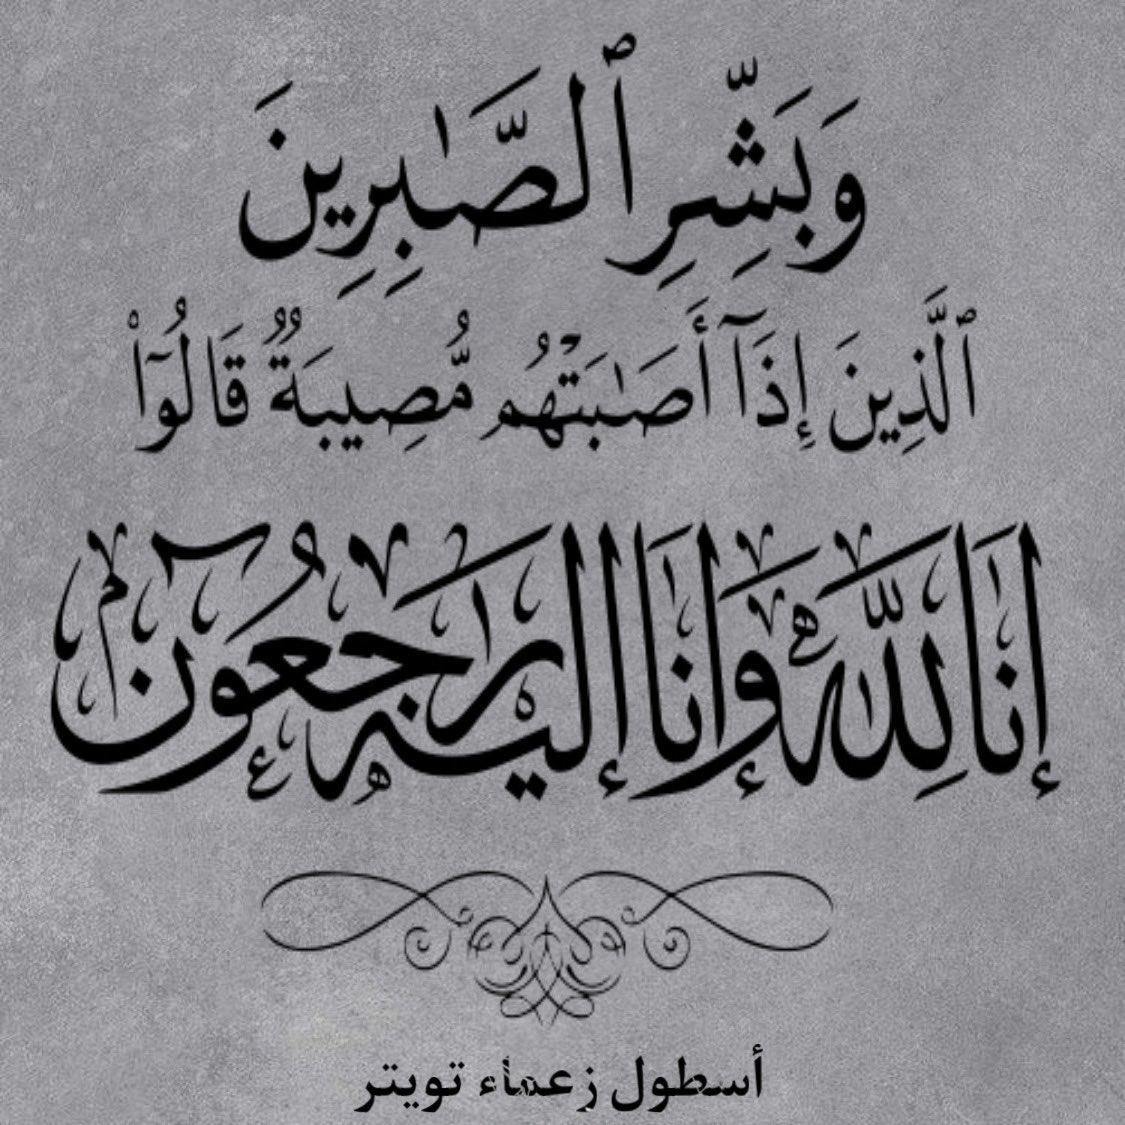 وَبَشِّرِ ٱلصَّـٰبِرِينَ
ٱلَّذِينَ إِذَآ أَصَـٰبَتْهُم مُّصِيبَةٌ قَالُوٓا۟
إنَا لِلّٰه وَإنَا إليه رَاجعُون
أسطول زعماء تويتر